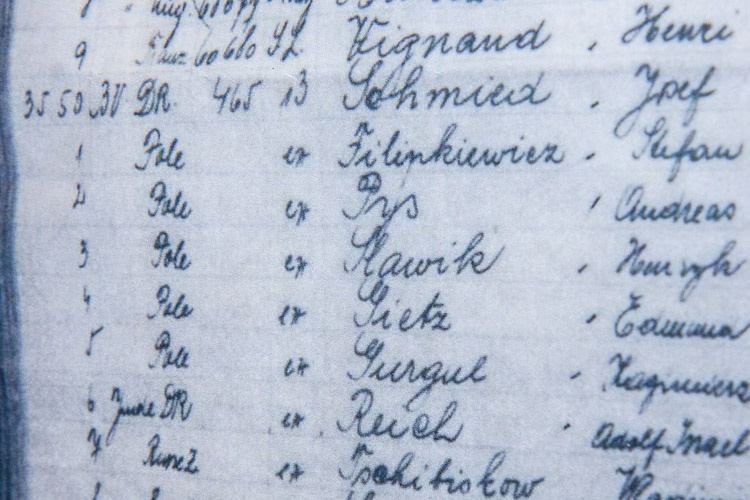 9 60660 Vignaud, Henri
3550 BV DR 465 13 Schmied, Josef
1 Pole ex Filipkiewicz, Stefan
2 Pole ex Pys, Andreas
3 Pole ex Slawik, Henryk
4 Pole ex Gietz, Edmund
5 Pole ex Gurgul, Kazimierz
6 Jude DR ex Reich, Adolf Israel
7 ex Tschibiskow